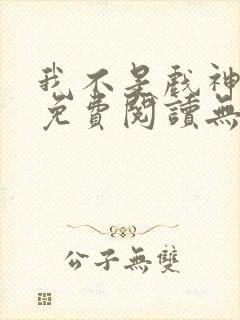 我不是戲神
免費閱讀無
公子無雙